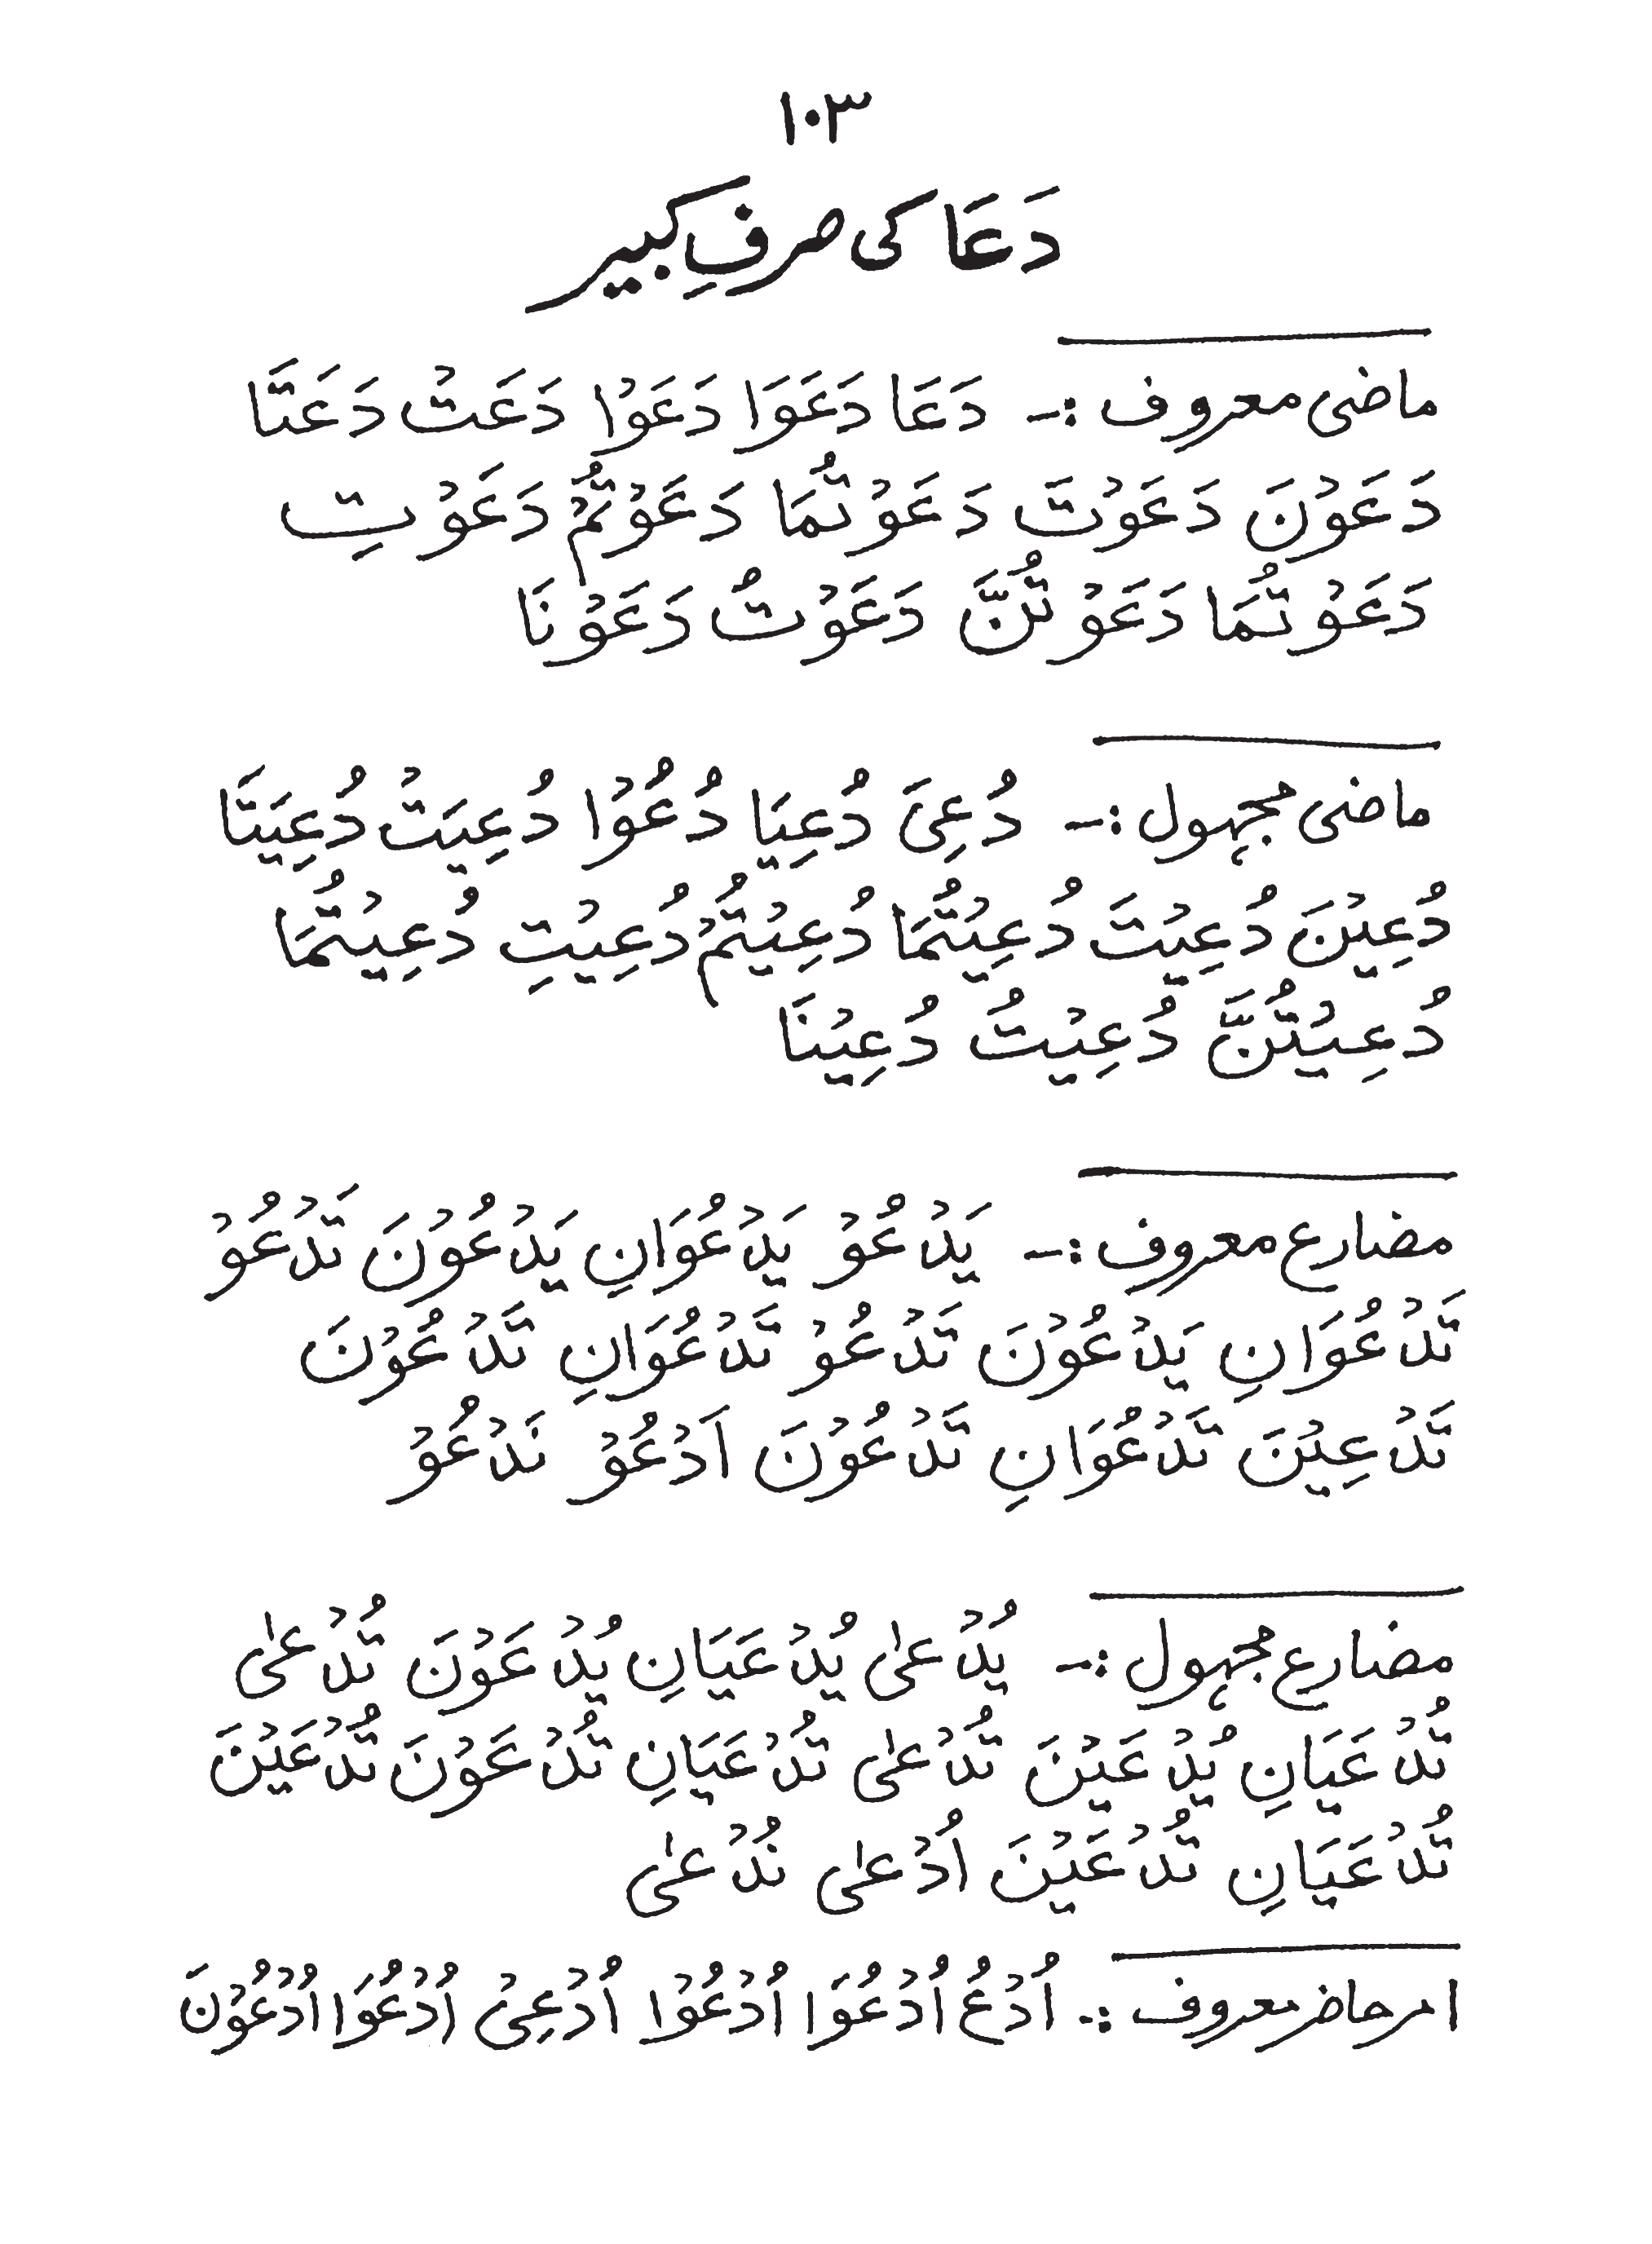 ۱۰۳
دَعَا کی صرفِ کبیر
ماضی معروف :- دَعَا دَعَوَا دَعَوْا دَعَتْ دَعَتَا
دَعَوْنَ دَعَوْتَ دَعَوْتُمَا دَعَوْتُمْ دَعَوْتِ
دَعَوْتُمَا دَعَوْتُنَّ دَعَوْتُ دَعَوْنَا
ماضی مجہول :- دُعِیَ دُعِیَا دُعُوْا دُعِیَتْ دُعِیَتَا
دُعِیْنَ دُعِیْتَ دُعِیْتُمَا دُعِیْتُمْ دُعِیْتِ دُعِیْتُمَا
دُعِیْتُنَّ دُعِیْتُ دُعِیْنَا
مضارع معروف :- یَدْعُوْ یَدْعُوَانِ یَدْعُوْنَ تَدْعُوْ
تَدْعُوَانِ یَدْعُوْنَ تَدْعُوْ تَدْعُوَانِ تَدْعُوْنَ
تَدْعِیْنَ تَدْعُوَانِ تَدْعُوْنَ اَدْعُوْ نَدْعُوْ
مضارع مجہول :- یُدْعٰی یُدْعَیَانِ یُدْعَوْنَ تُدْعٰی
تُدْعَیَانِ یُدْعَیْنَ تُدْعٰی تُدْعَیَانِ تُدْعَوْنَ تُدْعَیْنَ
تُدْعَیَانِ تُدْعَیْنَ اُدْعٰی نُدْعٰی
امر حاضر معروف :- اُدْعُ اُدْعُوَا اُدْعُوْا اُدْعِیْ اُدْعُوَا اُدْعُوْنَ